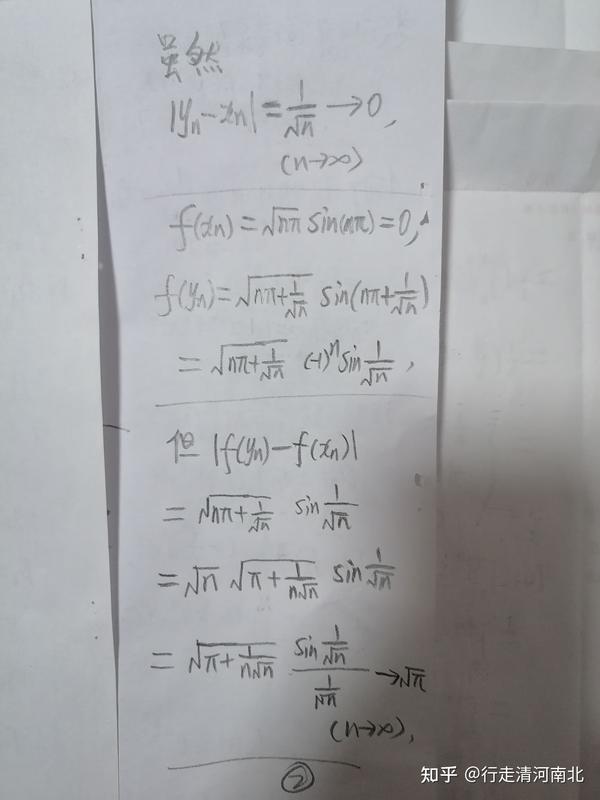 虽然
|yₙ-xₙ|=1/√n→0,
(n→∞)
f(xₙ)=√(nπ) sin(nπ)=0,
f(yₙ)=√(nπ+1/√n) sin(nπ+1/√n)
=√(nπ+1/√n) (-1)ⁿ sin 1/√n ,
但 |f(yₙ)-f(xₙ)|
=√(nπ+1/√n) sin 1/√n
=√n √(π+1/(n√n)) sin 1/√n
=√(π+1/(n√n)) (sin 1/√n)/(1/√n) →√π
(n→∞),
②
知乎 @行走清河南北